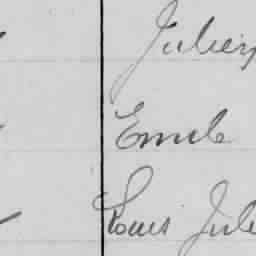 Julien
Emile
Louis Jule